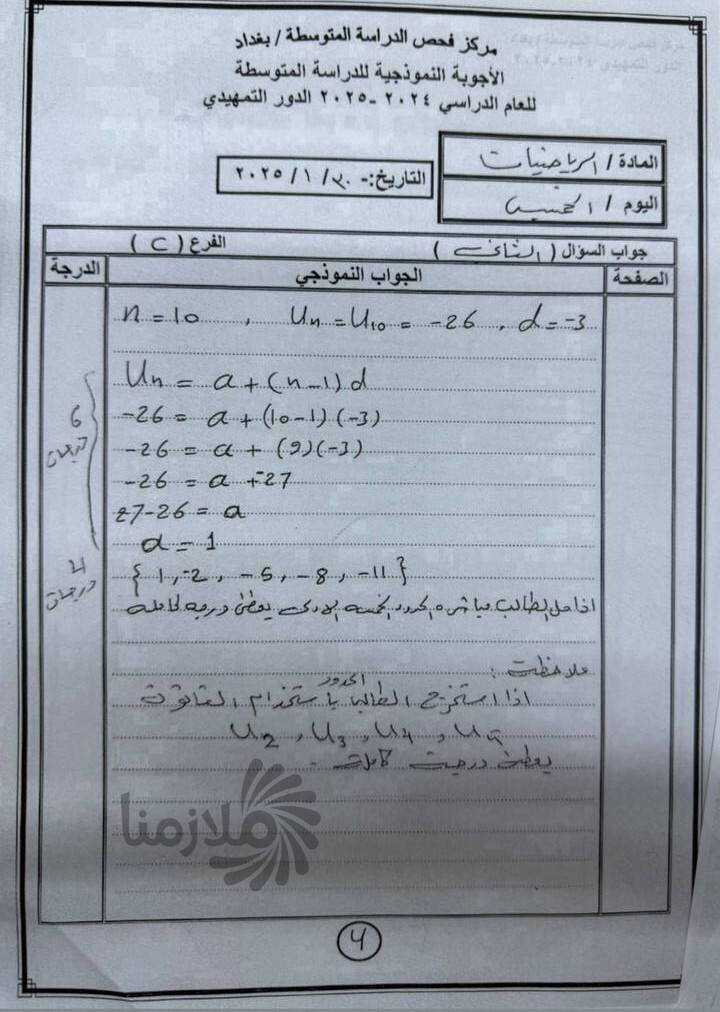 مركز فحص الدراسة المتوسطة / بغداد
الأجوبة النموذجية للدراسة المتوسطة
للعام الدراسي ٢٠٢٤ -٢٠٢٥ الدور التمهيدي
المادة / الرياضيات
اليوم / الخميس
التاريخ:- ٣٠ / ١ / ٢٠٢٥
جواب السؤال ( الثاني ) الفرع ( C )
الصفحة الجواب النموذجي الدرجة
n = 10 , Un = U10 = -26 , d = -3
Un = a + (n-1) d
-26 = a + (10-1) (-3)
-26 = a + (9)(-3)
-26 = a + -27
27-26 = a
a = 1
6 درجات
{ 1, -2, -5, -8, -11 }
4 درجات
اذا حل الطالب مباشرة الحدود الخمسة الاولى يعطى درجة كاملة
ملاحظة :
اذا استخرج الطالب الحدود باستخدام القانون
U2 , U3 , U4 , U5
يعطى درجة كاملة .
ملازمنا
4